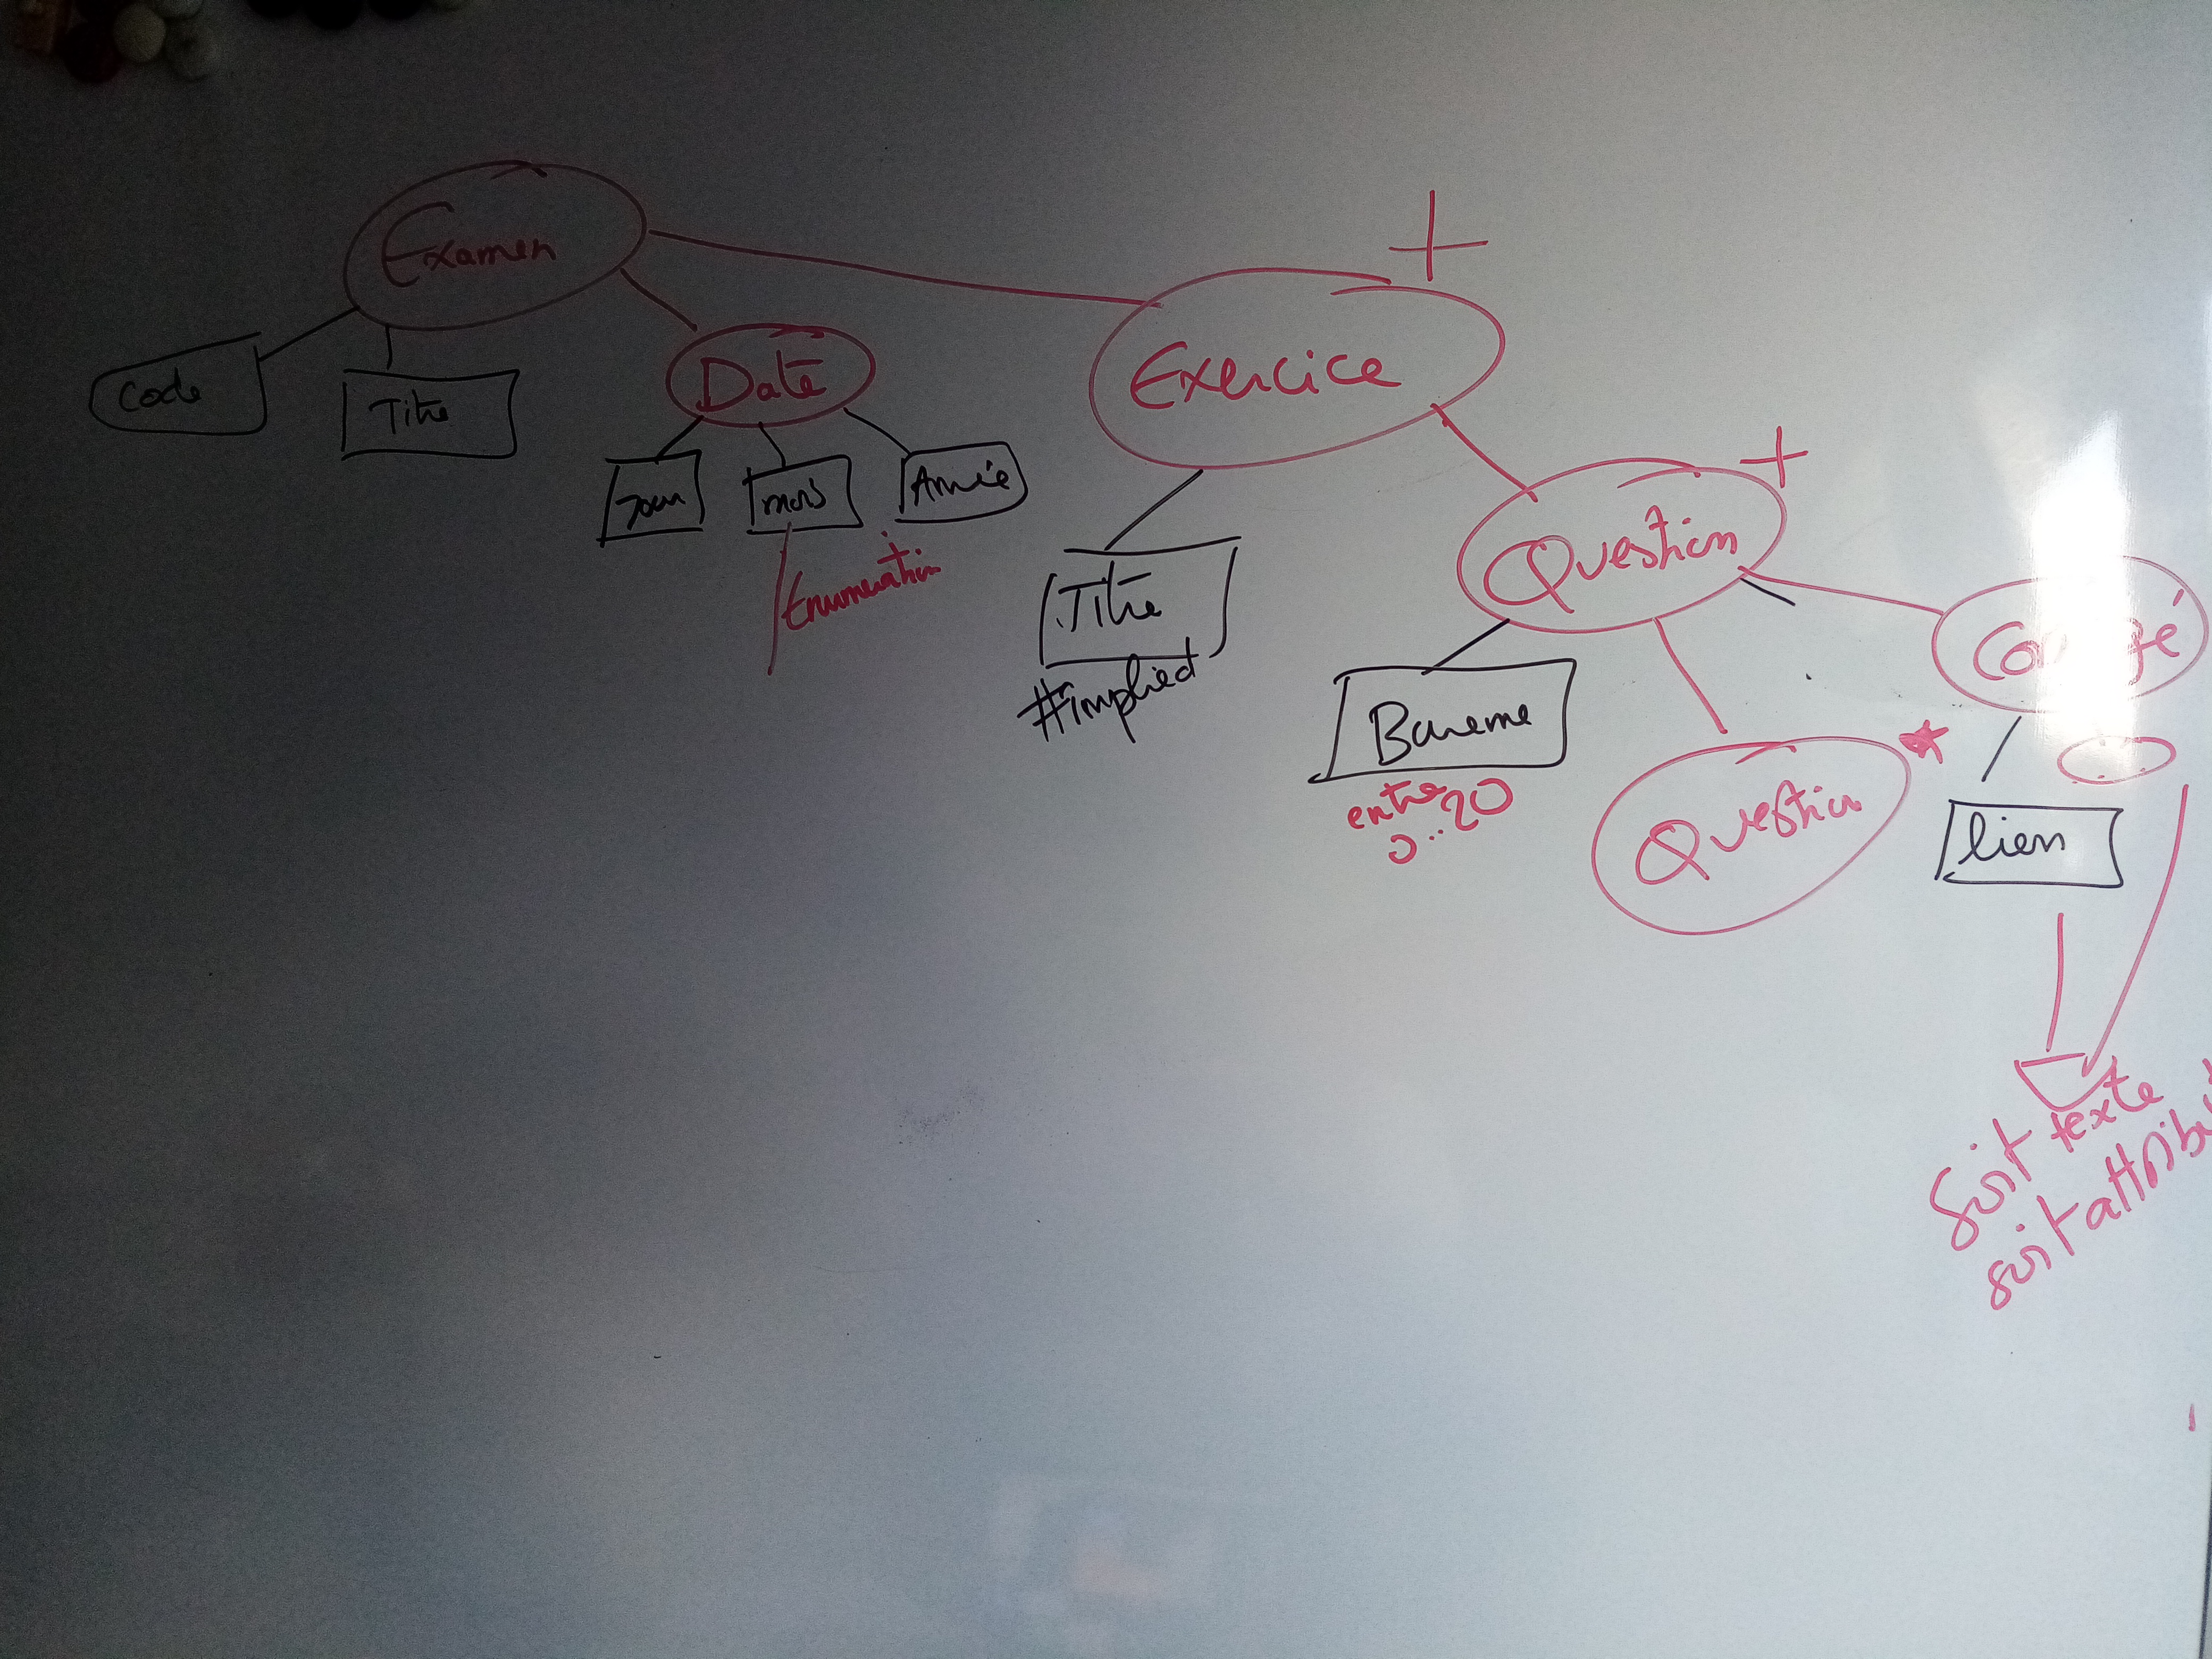 Examen
Code
Titre
Date
Jour
mois
Année
Enumeration
+
Exercice
Titre
#implied
+
Question
Bareme
entre
0..20
Question
*
lien
Soit texte
soit attribu